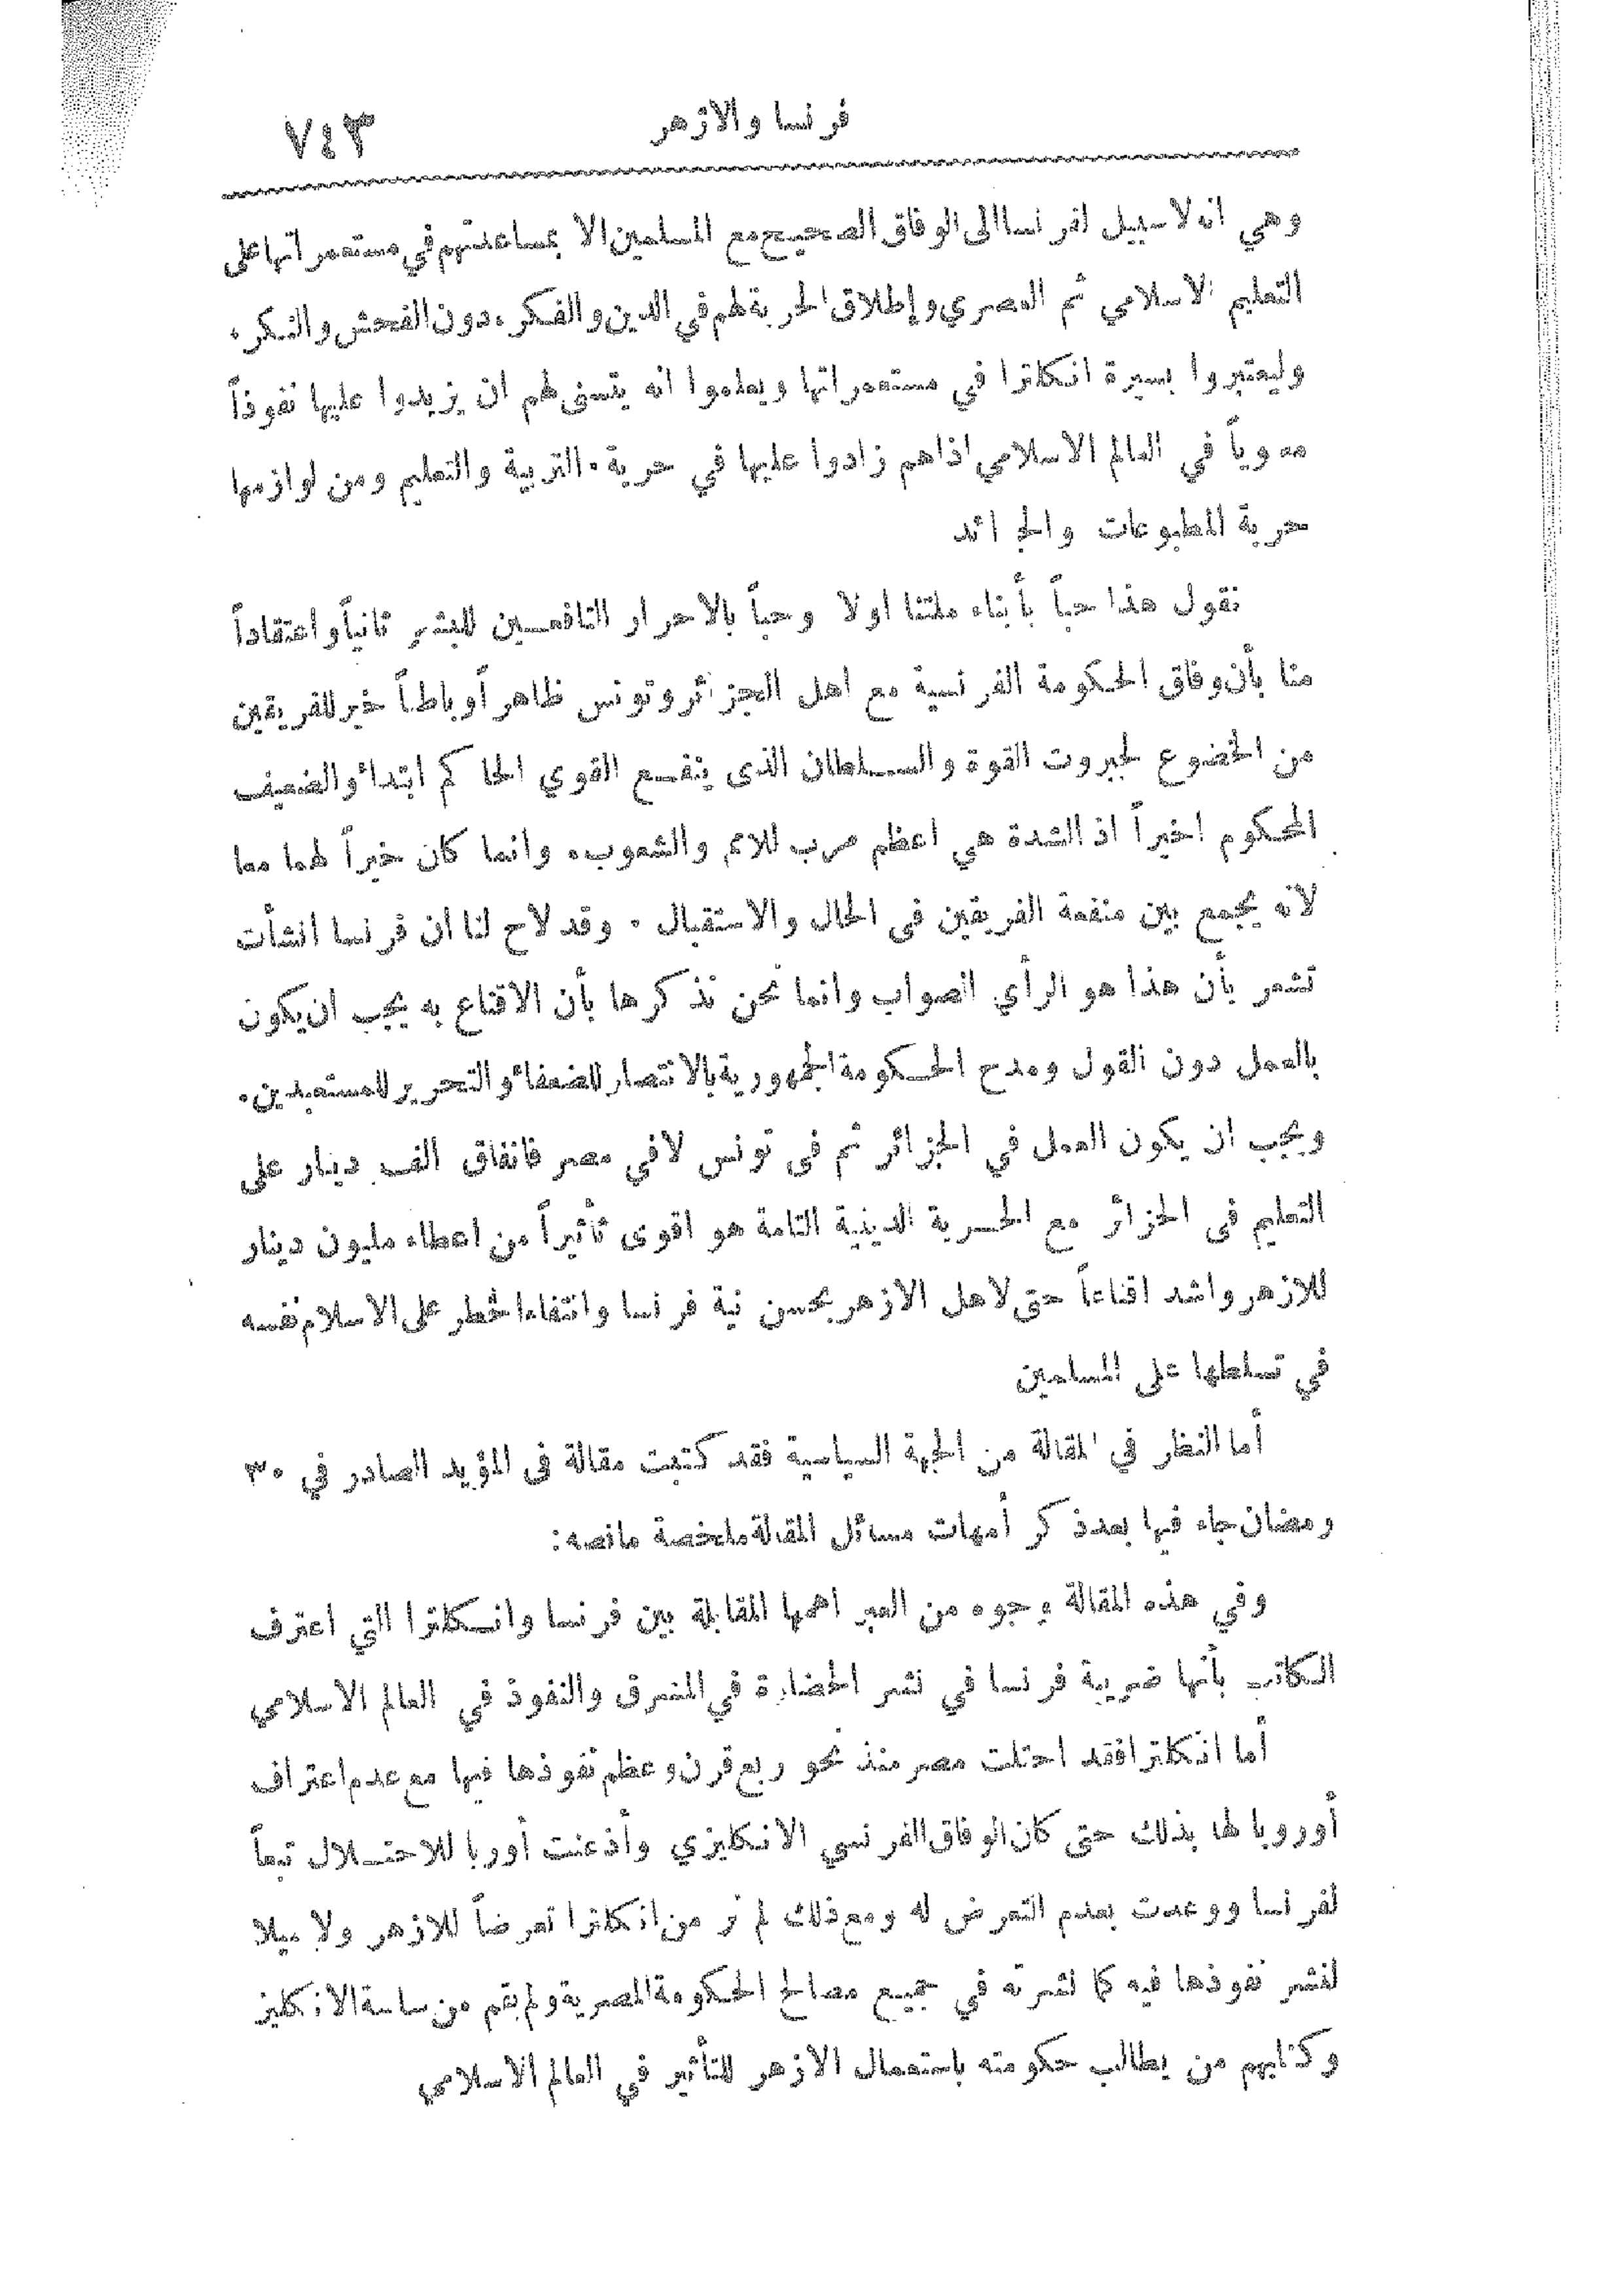 فرنسا والازهر ٧٤٣
وهي انه لا سبيل لفرنسا الى الوفاق الصحيح مع المسلمين الا بمساعدتهم في مستعمراتها على
التعليم الاسلامي ثم العصري وإطلاق الحرية لهم في الدين والفكر . دون الفحش والنكر .
وليعتبروا بسيرة انكلترا في مستعمراتها ويعلموا انه يتسنى لهم ان يزيدوا عليها نفوذاً
معنوياً في العالم الاسلامي اذا هم زادوا عليها في حرية . التربية والتعليم ومن لوازمها
حرية المطبوعات والجرائد
نقول هذا حباً بأبناء ملتنا اولا وحباً بالاحرار النافعين للبشر ثانياً واعتقاداً
منا بأن وفاق الحكومة الفرنسية مع اهل الجزائر وتونس ظاهراً وباطناً خير للفريقين
من الخضوع لجبروت القوة والسلطان الذى ينفع القوي الحاكم ابتداءً والضعيف
المحكوم اخيراً اذ الشدة هي اعظم مرب للامم والشعوب . وانما كان خيراً لهما معا
لانه يجمع بين منفعة الفريقين فى الحال والاستقبال . وقد لاح لنا ان فرنسا انشأت
تشعر بأن هذا هو الرأي الصواب وانما نحن نذكرها بأن الاقناع به يجب ان يكون
بالعمل دون القول ومدح الحكومة الجمهورية بالانتصار للضعفاء والتحرير للمستعبدين .
ويجب ان يكون العمل في الجزائر ثم فى تونس لا في مصر فانفاق الف دينار على
التعليم فى الجزائر مع الحرية الدينية التامة هو اقوى تأثيراً من اعطاء مليون دينار
للازهر واشد اقناعاً حتى لاهل الازهر بحسن نية فرنسا وانتفاء الخطر على الاسلام نفسه
في تسلطها على المسلمين
أما النظر في المقالة من الجهة السياسية فقد كتبت مقالة فى المؤيد الصادر في ٣٠
رمضان جاء فيها بعد ذكر أمهات مسائل المقالة ملخصة مانصه :
وفي هذه المقالة وجوه من العبر اهمها المقابلة بين فرنسا وانكلترا التي اعترف
الكاتب بأنها ضريبة فرنسا في نشر الحضارة في الشرق والنفوذ في العالم الاسلامي
أما انكلترا فقد احتلت مصر منذ نحو ربع قرن وعظم نفوذها فيها مع عدم اعتراف
أوروبا لها بذلك حتى كان الوفاق الفرنسي الانكليزي وأذعنت أوربا للاحتلال تبعاً
لفرنسا ووعدت بعدم التعرض له ومع ذلك لم نر من انكلترا تعرضاً للازهر ولا ميلا
لنشر نفوذها فيه كما نشرته في جميع مصالح الحكومة المصرية ولم يقم من ساسة الانكليز
وكتابهم من يطالب حكومته باستعمال الازهر للتأثير في العالم الاسلامي